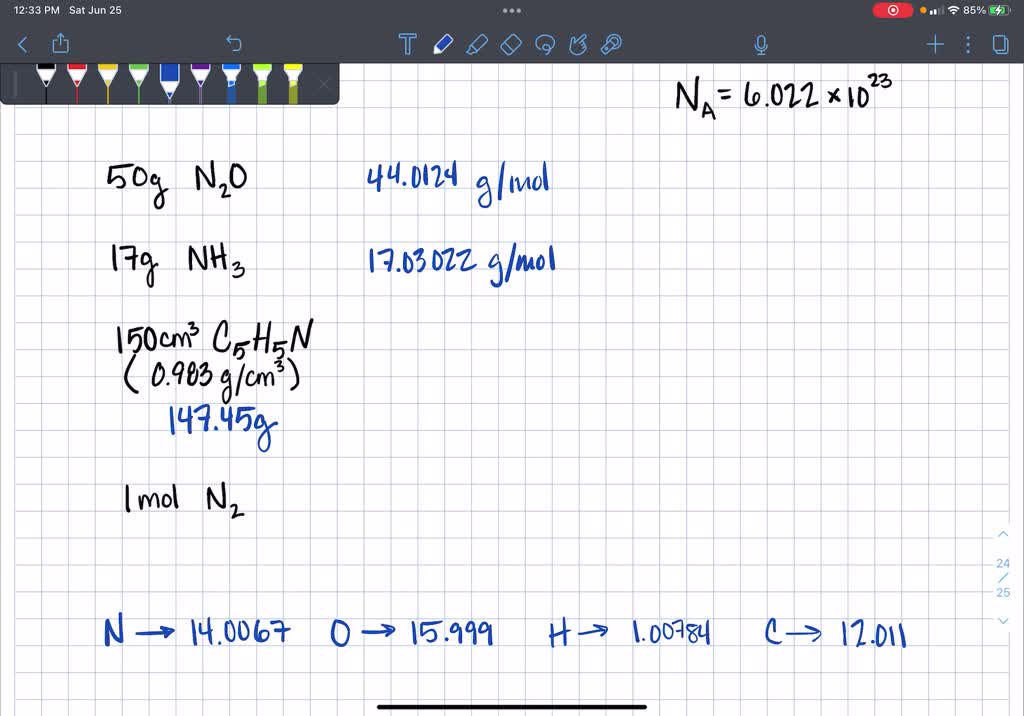 12:33 PM Sat Jun 25
85%
T
N_A = 6.022 × 10²³
50g N₂O 44.0124 g/mol
17g NH₃ 17.03022 g/mol
150cm³ C₅H₅N
(0.983 g/cm³)
147.45g
1mol N₂
24
/
25
N → 14.0067 O → 15.999 H → 1.00784 C → 12.011